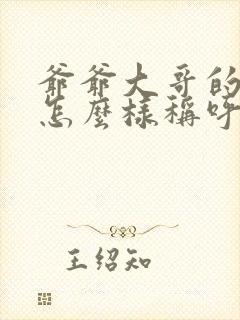 爺爺大哥的
怎麼樣稱呼
王绍知